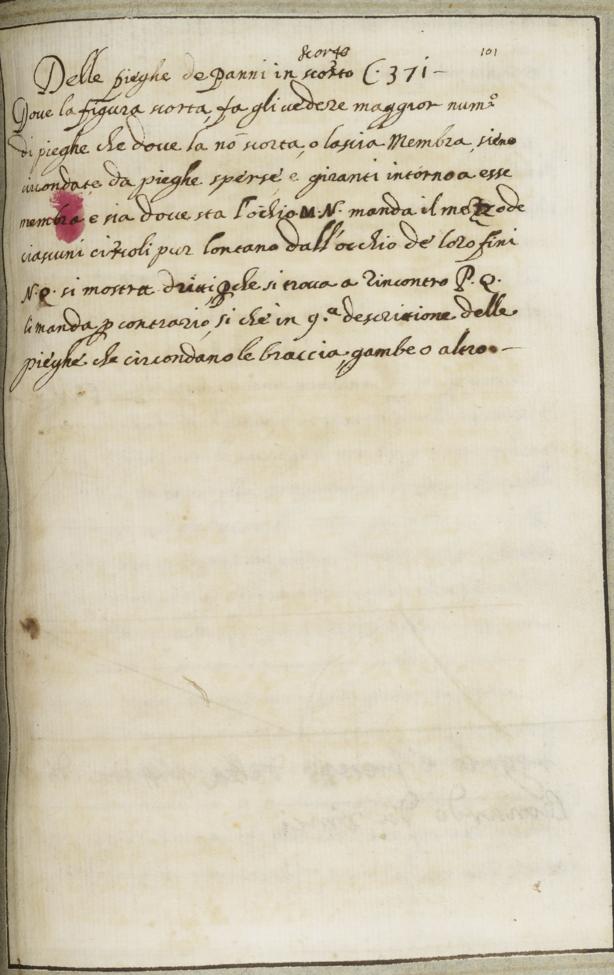 101
scorto
Delle pieghe de Panni in scorto C. 371 -
Dove la figura scorta, fa gli vedere maggior num.º
di pieghe che dove la nō scorta, o lascia Membra, sieno
circondate da pieghe sperse, e giranti intorno a esse
membra e sia dove sta l'ochio M.N. manda il mezzo de
ciascuni circoli pur lontano dall'occhio de loro fini
N.O. si mostra driti che si trova a rincontro P.Q.
li manda p contrario, si che in q.ª descritione delle
pieghe che circondano le braccia, gambe o altro. -